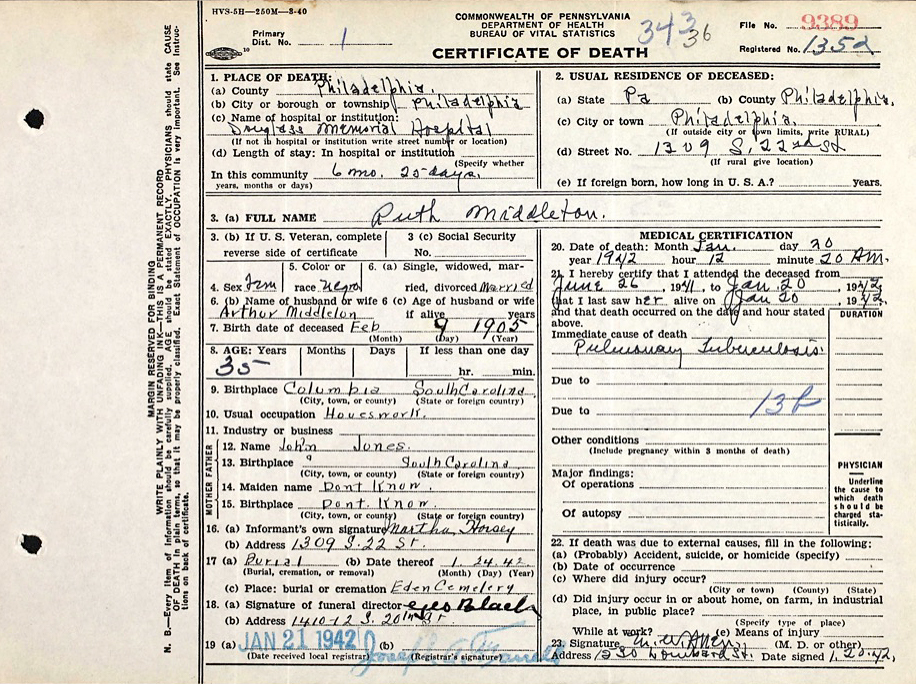 HVS-5H—250M—3-40
COMMONWEALTH OF PENNSYLVANIA
DEPARTMENT OF HEALTH
BUREAU OF VITAL STATISTICS
CERTIFICATE OF DEATH
Primary
Dist. No. 1
343 36
File No. 9389
Registered No. 1352
MARGIN RESERVED FOR BINDING
WRITE PLAINLY WITH UNFADING INK—THIS IS A PERMANENT RECORD
N. B.—Every item of information should be carefully supplied. AGE should be stated EXACTLY. PHYSICIANS should state CAUSE
OF DEATH in plain terms, so that it may be properly classified. Exact Statement of OCCUPATION is very important. See Instruc-
tions on back of certificate.
1. PLACE OF DEATH:
(a) County Philadelphia.
(b) City or borough or township Philadelphia
(c) Name of hospital or institution:
Douglass Memorial Hospital
(If not in hospital or institution write street number or location)
(d) Length of stay: In hospital or institution
(Specify whether
In this community 6 mo. 25 days.
years, months or days)
2. USUAL RESIDENCE OF DECEASED:
(a) State Pa (b) County Philadelphia.
(c) City or town Philadelphia.
(If outside city or town limits, write RURAL)
(d) Street No. 1309 S. 22nd St
(If rural give location)
(e) If foreign born, how long in U. S. A.? years.
3. (a) FULL NAME Ruth Middleton.
3. (b) If U. S. Veteran, complete
reverse side of certificate
3 (c) Social Security
No.
4. Sex Fem
5. Color or
race Negro
6. (a) Single, widowed, mar-
ried, divorced Married
6. (b) Name of husband or wife
Arthur Middleton
6 (c) Age of husband or wife
if alive years
7. Birth date of deceased Feb 9 1905
(Month) (Day) (Year)
8. AGE: Years Months Days If less than one day
35 hr. min.
9. Birthplace Columbia South Carolina
(City, town, or county) (State or foreign country)
10. Usual occupation Housework.
11. Industry or business
FATHER
12. Name John Jones.
13. Birthplace ? South Carolina
(City, town, or county) (State or foreign country)
MOTHER
14. Maiden name Dont Know
15. Birthplace Dont. Know.
(City, town, or county) (State or foreign country)
16. (a) Informant's own signature Martha Horsey
(b) Address 1309 S. 22 St.
17 (a) Burial (b) Date thereof 1. 24. 42
(Burial, cremation, or removal) (Month) (Day) (Year)
(c) Place: burial or cremation Eden Cemetery
18. (a) Signature of funeral director Geo Black
(b) Address 1410-12 S. 20th St
19 (a) JAN 21 1942 (b)
(Date received local registrar) (Registrar's signature)
MEDICAL CERTIFICATION
20. Date of death: Month Jan. day 20
year 1942 hour 12 minute 20 AM.
21. I hereby certify that I attended the deceased from
June 26, 1941, to Jan. 20, 1942,
that I last saw her alive on Jan 20 1942,
and that death occurred on the date and hour stated
above.
DURATION
Immediate cause of death
Pulmonary Tuberculosis.
Due to
Due to 13b
Other conditions
(Include pregnancy within 3 months of death)
Major findings:
Of operations
Of autopsy
PHYSICIAN
Underline
the cause to
which death
should be
charged sta-
tistically.
22. If death was due to external causes, fill in the following:
(a) (Probably) Accident, suicide, or homicide (specify)
(b) Date of occurrence
(c) Where did injury occur?
(City or town) (County) (State)
(d) Did injury occur in or about home, on farm, in industrial
place, in public place?
(Specify type of place)
While at work? (e) Means of injury
23. Signature (M. D. or other)
Address 1230 Lombard St. Date signed 1.20.42.